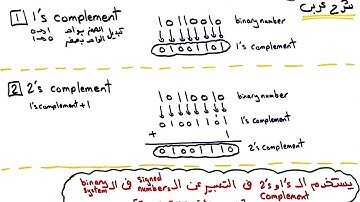 شرح عربي
1 1's complement
0→1 تبديل الصفر بواحد
1→0 الواحد بصفر
1 0 1 1 0 0 1 0 binary number
0 1 0 0 1 1 0 1 1's complement
2 2's complement
1's complement + 1
1 0 1 1 0 0 1 0 binary number
0 1 0 0 1 1 0 1 1's complement
+ 1
0 1 0 0 1 1 1 0 2's complement
يستخدم الـ 1's و 2's complement في التعبير عن الـ signed numbers في الـ binary system